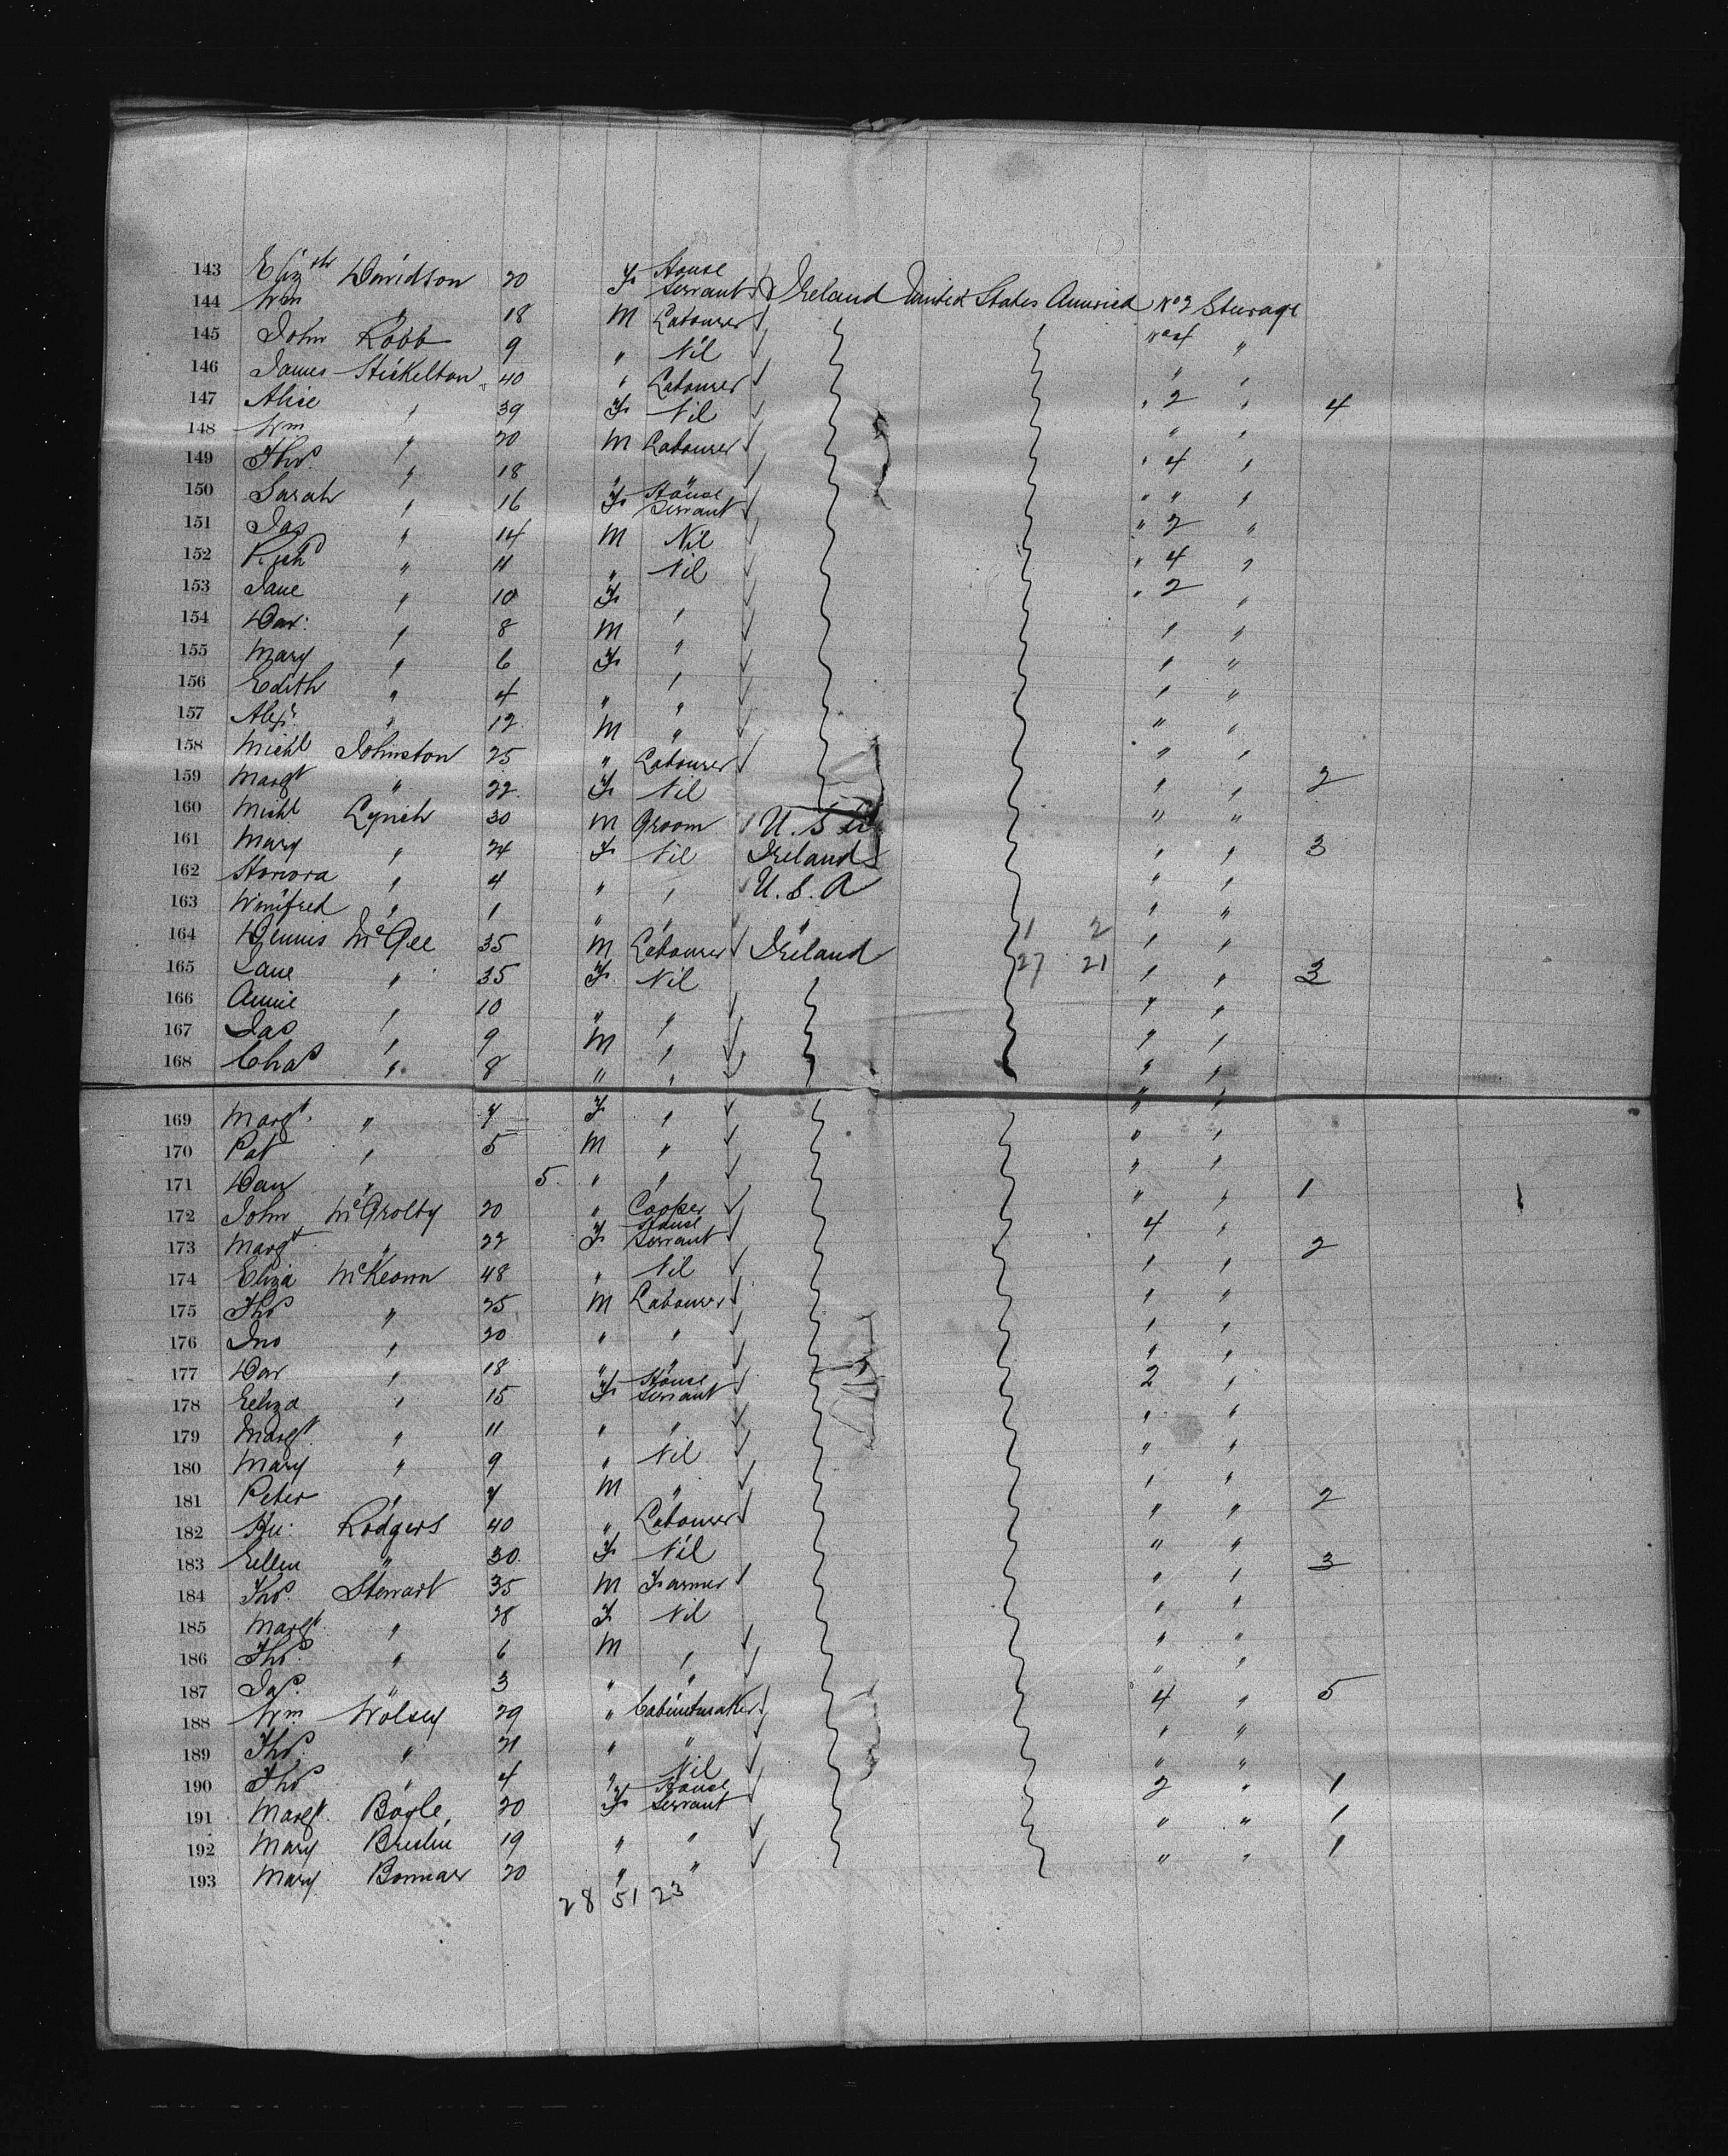 143 Elizth Davidson 20 F House Servant Ireland United States America No 2 Steerage
144 Wm " 18 M Labourer No 4 "
145 John Robb 9 " Nil " "
146 James Stickelton 40 " Labourer " 2 " 4
147 Alice " 39 F Nil " "
148 Wm " 20 M Labourer " 4 "
149 Thos. " 18 " " " " "
150 Sarah " 16 F House Servant " 2 "
151 Jas " 14 M Nil " 4 "
152 Richd " 11 " Nil " 2 "
153 Jane " 10 F " " "
154 Dav: " 8 M " " "
155 Mary " 6 F " " "
156 Edith " 4 " " " "
157 Alexr " 12 M " " "
158 Michl Johnston 25 " Labourer " " 2
159 Margt " 22 F Nil " "
160 Michl Lynch 30 M Groom U.S.A " " 3
161 Mary " 24 F Nil Ireland " "
162 Honora " 4 " " U.S.A " "
163 Winifred " 1 " " " 1 2 " "
164 Dennis McGee 35 M Labourer Ireland 27 21 " " 3
165 Jane " 35 F Nil " "
166 Annie " 10 " " " "
167 Jas " 9 M " " "
168 Chas " 8 " " " "
169 Margt. " 7 F " " "
170 Pat " 5 M " " "
171 Dan " 5 " " " " 1
172 John McGrolty 20 " Cooper 4 "
173 Margt " 22 F House Servant " " 2
174 Eliza McKeown 48 " Nil " "
175 Thos " 25 M Labourer " "
176 Jno " 20 " " " "
177 Dav " 18 " " 2 "
178 Eeliza " 15 F House Servant " "
179 Margt. " 11 " " " "
180 Mary " 9 " Nil " "
181 Peter " 7 M " " " 2
182 Rodgers 40 " Labourer " "
183 Eellen " 30 F Nil " " 3
184 Thos. Stewart 35 M Farmer " "
185 Margt. " 28 F Nil " "
186 Thos. " 6 M " " "
187 Jas. " 3 " " 4 " 5
188 Wm Wolsey 29 " Cabinetmaker " "
189 Thos. " 21 " " " "
190 Thos " 4 " Nil 2 " 1
191 Margt. Bogle 20 F House Servant " " 1
192 Mary Breslin 19 " " " " 1
193 Mary Bonnar 20 " "
28 51 23